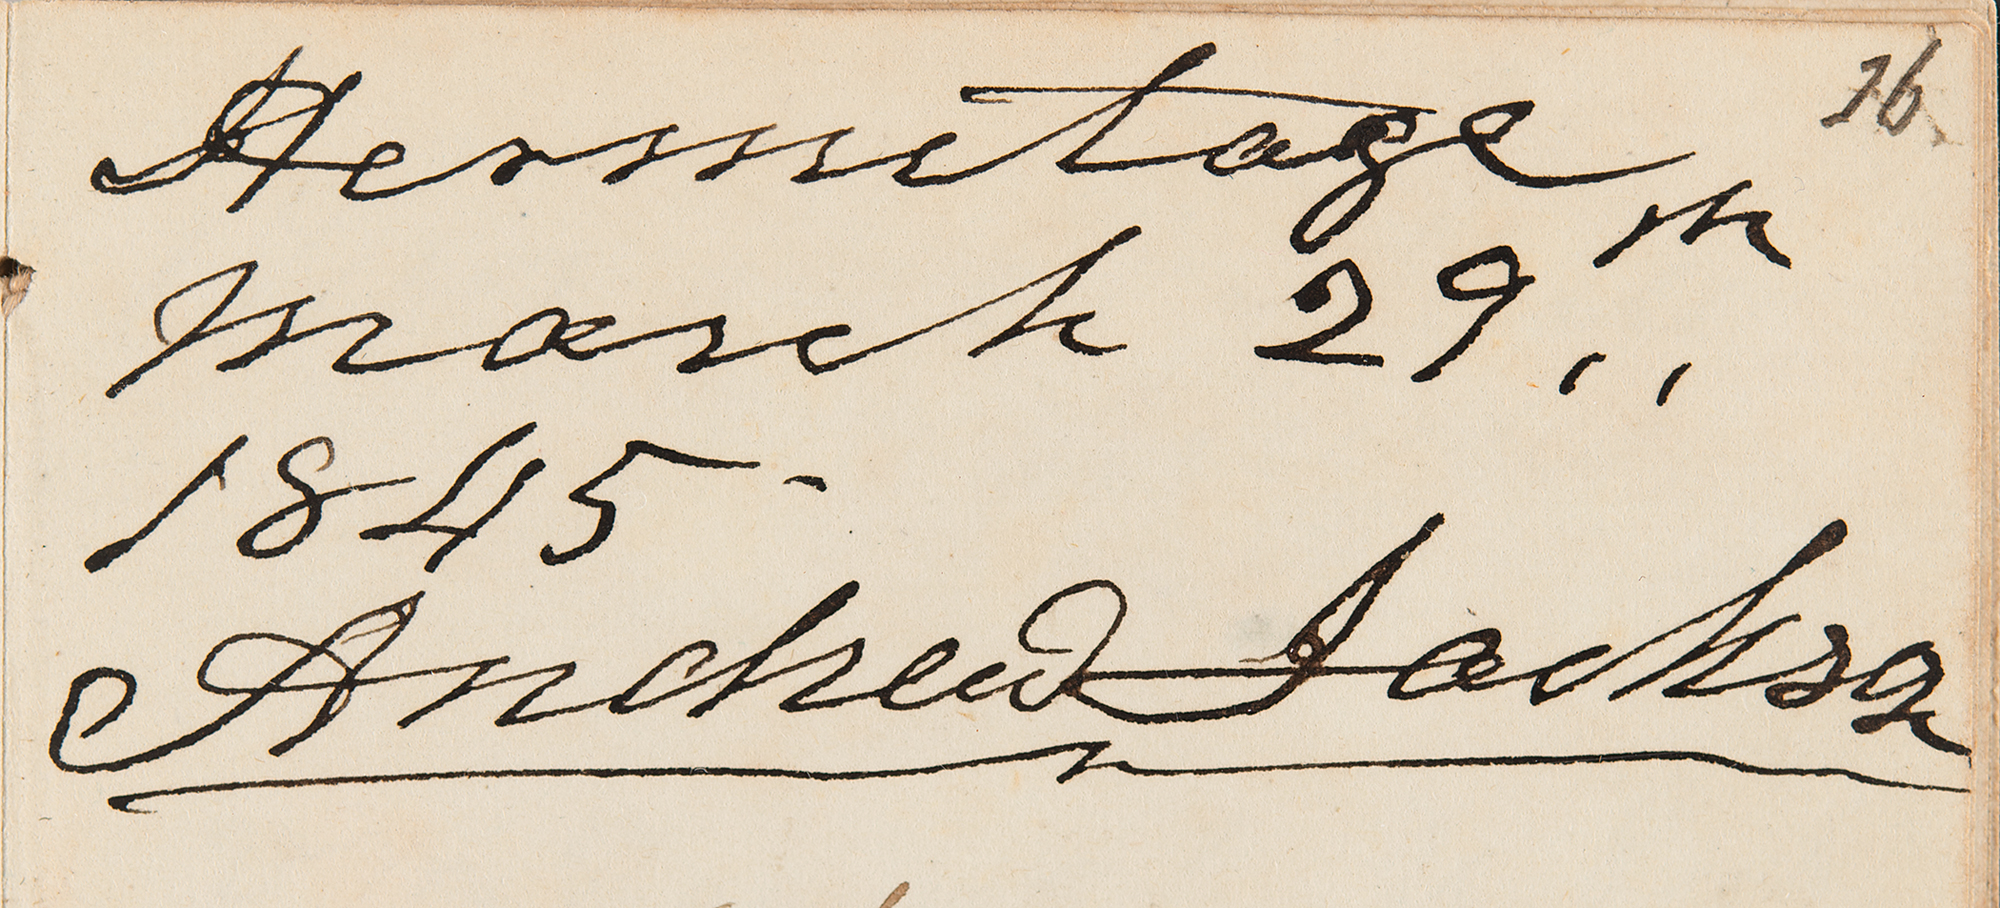 76
Hermitage
March 29th,,
1845-
Andrew Jackson